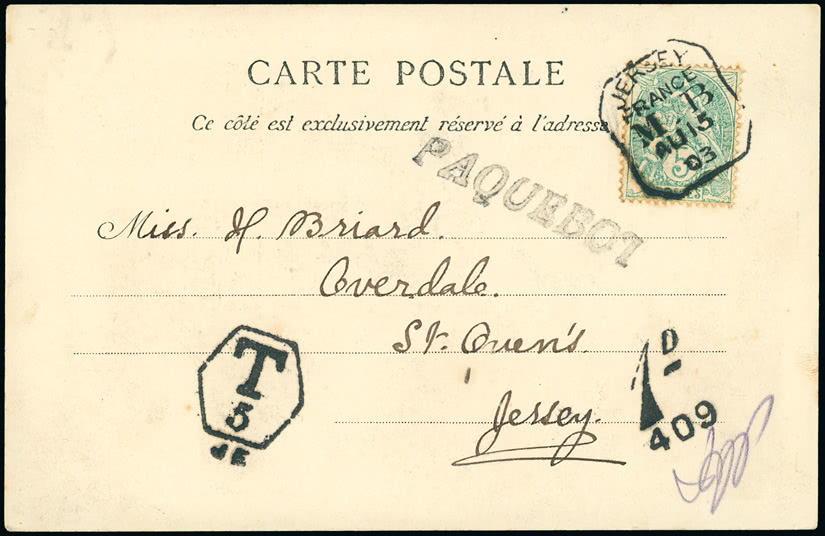 CARTE POSTALE
Ce côté est exclusivement réservé à l'adresse
JERSEY
FRANCE
M. B
AU 15
03
5
PAQUEBOT
Miss. H. Briard.
Overdale.
St. Ouen's.
Jersey.
T
5
JE
1D
409